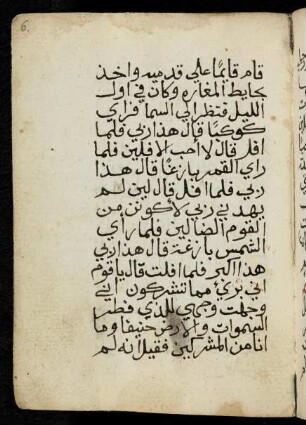 6
قام قايمًا على قدميه واخذ
بحايط المغاره وكان في اول
الليل فنظر الي السما فراي
كوكبًا قال هذا ربي فلما
افل قال لا احب الافلين فلما
راي القمر بازغًا قال هذا
ربي فلما افل قال لين لم
يهدني ربي لاكونن من
القوم الضالين فلما رأي
الشمس بازغة قال هذا ربي
هذا اكبر فلما افلت قال ياقوم
اني بريء مما تشركون اني
وجهت وجهي للذي فطر
السموات والارض حنيفًا وما
انا من المشركين فقيل انه لم